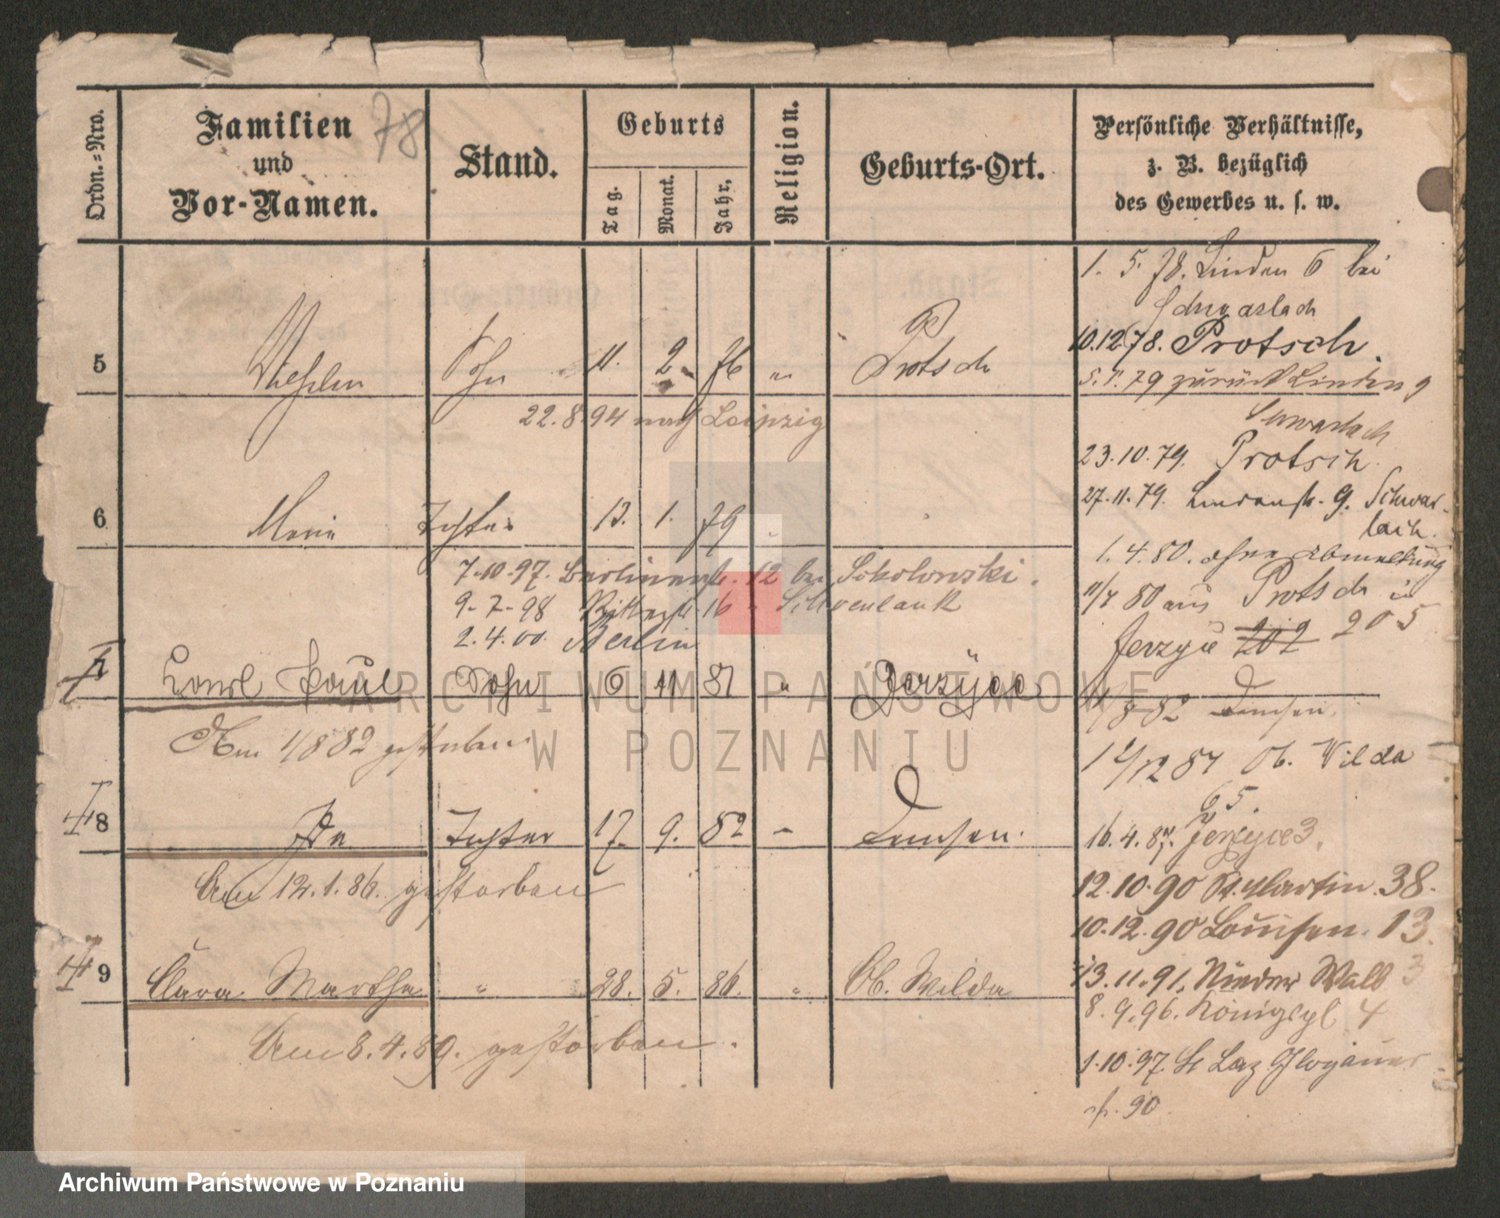 78
Ordn.=Nro.
Familien
und
Vor-Namen.
Stand.
Geburts
Tag.
Monat.
Jahr,
Religion.
Geburts-Ort.
Persönliche Verhältnisse,
z. B. bezüglich
des Gewerbes u. s. w.
1. 5. 78. Linden 6 bei
10.12.78. Protsch.
5 Sohn 11. 2. 76 " Protsch
5. 1. 79 zurück Linden 9
22.8.94 nach Leipzig
23.10.79. Protsch.
6 Marie Tochter 13. 1. 79
27.11.79. Lindenstr. 9. Schwar-
1.4.80. ohne Abmeldung
7.10.97. Berlinerstr. 12 bei Sokolowski.
9.7.98 Ritterstr 16 " Schoenlank
2.4.00. Berlin
80 aus Protsch in
Jerzyce 202 205
7 Karl Paul Sohn 6 11 81 " Jerzyce
8 82 Demsen.
Am 1/8 82 gestorben
12 87 Ob. Wilda
65.
8 Ida Tochter 17. 9. 82 " Demsen.
16.4.87. Jerzyce 3.
Am 12.1.86. gestorben
12.10.90 St. Martin. 38.
10.12.90 Louisen. 13.
9 Clara Martha " 28. 5. 86. " Ob. Wilda
13.11.91. Nieder Wall 3
8.9.96. Königspl 4
Am 8.4.89. gestorben.
1.10.97. St Laz Glogauer
str. 90
ARCHIWUM PAŃSTWOWE
W POZNANIU
Archiwum Państwowe w Poznaniu